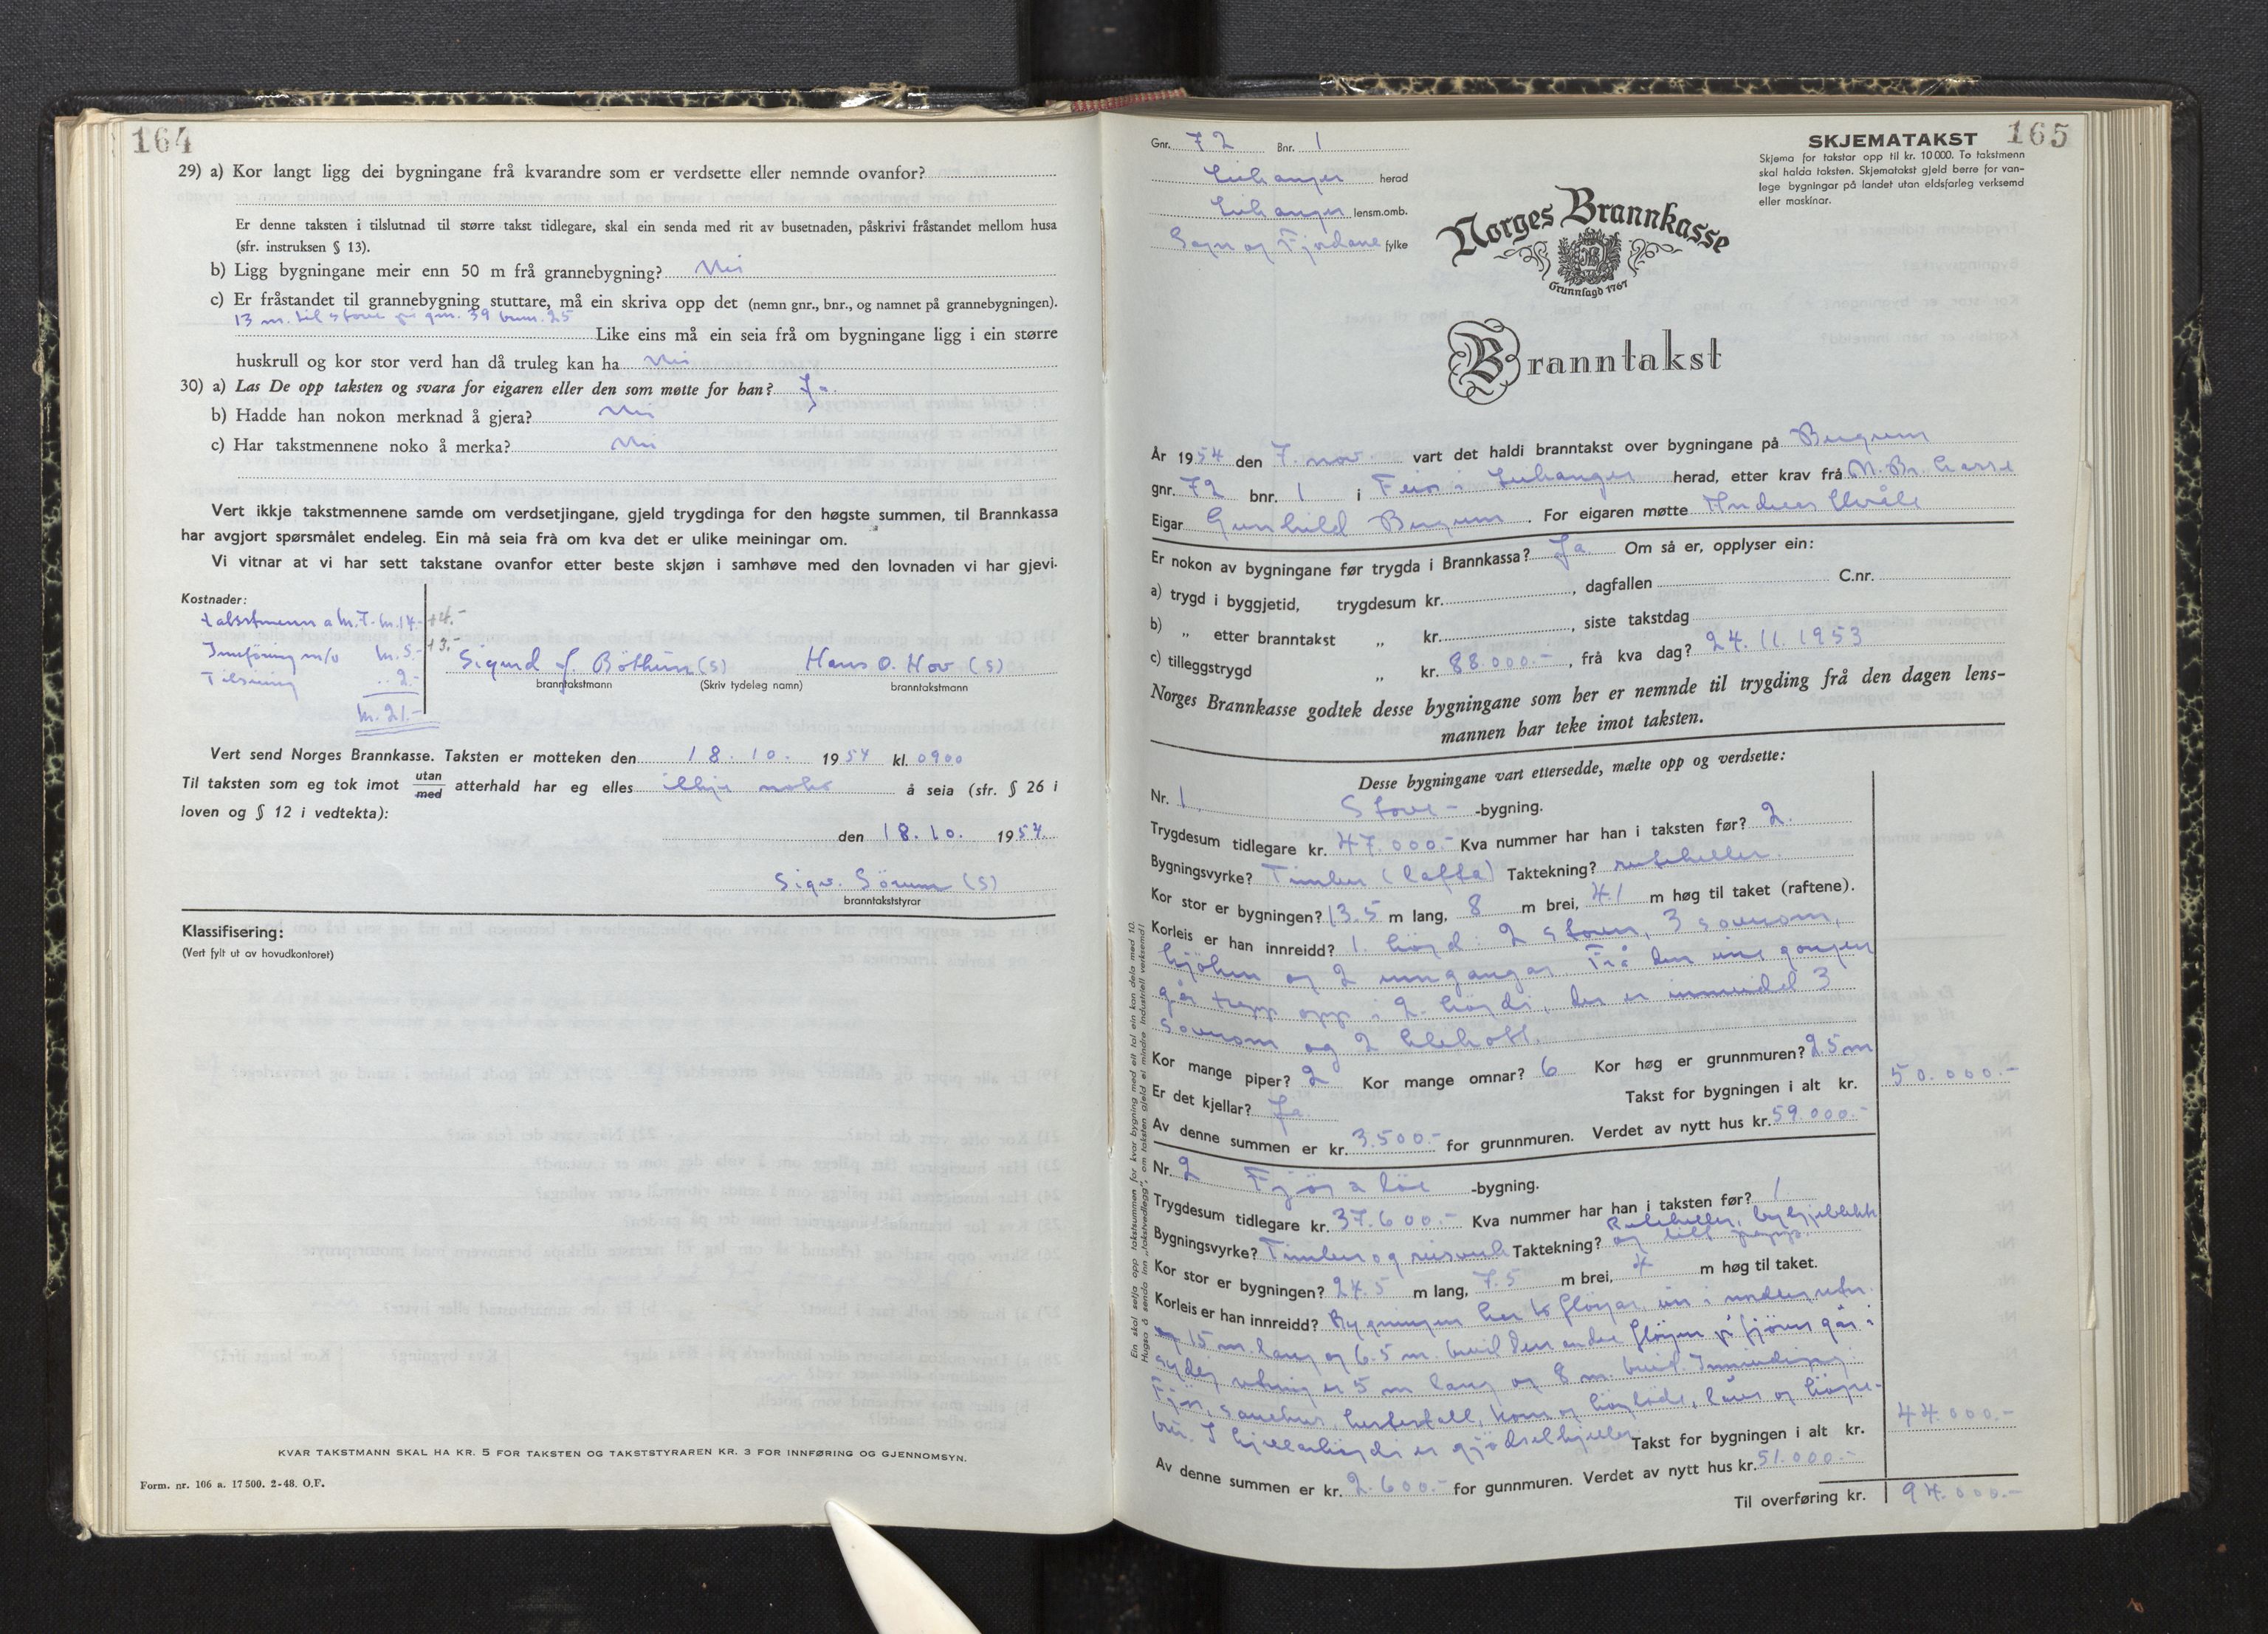 164
29) a) Kor langt ligg dei bygningane frå kvarandre som er verdsette eller nemnde ovanfor?
Er denne taksten i tilslutnad til større takst tidlegare, skal ein senda med rit av busetnaden, påskrivi fråstandet mellom husa
(sfr. instruksen § 13).
b) Ligg bygningane meir enn 50 m frå grannebygning? Nei
c) Er fråstandet til grannebygning stuttare, må ein skriva opp det (nemn gnr., bnr., og namnet på grannebygningen).
13 m. til stove på gnr. 39 bnr. 25
Like eins må ein seia frå om bygningane ligg i ein større
huskrull og kor stor verd han då truleg kan ha Nei
30) a) Las De opp taksten og svara for eigaren eller den som møtte for han? Ja.
b) Hadde han nokon merknad å gjera? Nei
c) Har takstmennene noko å merka? Nei
Vert ikkje takstmennene samde om verdsetjingane, gjeld trygdinga for den høgste summen, til Brannkassa
har avgjort spørsmålet endeleg. Ein må seia frå om kva det er ulike meiningar om.
Vi vitnar at vi har sett takstane ovanfor etter beste skjøn i samhøve med den lovnaden vi har gjevi.
Kostnader:
takstmenn a kr. 7.- kr. 14.- +4.-
Innföring m/v kr. 5.- +3.-
2.-
kr. 21.-
Sigurd J. Böthun (s) Hans O. Hov (s)
branntakstmann (Skriv tydeleg namn) branntakstmann
Vert send Norges Brannkasse. Taksten er motteken den 18.10. 1954 kl. 0900
Til taksten som eg tok imot utan/med atterhald har eg elles ikkje noko å seia (sfr. § 26 i
loven og § 12 i vedtekta):
den 18.10. 1954.
Sigv. Sörum (s)
branntakststyrar
Klassifisering:
(Vert fylt ut av hovudkontoret)
KVAR TAKSTMANN SKAL HA KR. 5 FOR TAKSTEN OG TAKSTSTYRAREN KR. 3 FOR INNFØRING OG GJENNOMSYN.
Form. nr. 106 a. 17 500. 2-48. O.F.
165
Gnr. 72 Bnr. 1
Leikanger herad
Leikanger lensm.omb.
Sogn og Fjordane fylke
SKJEMATAKST
Skjema for takstar opp til kr. 10 000. To takstmenn
skal halda taksten. Skjematakst gjeld berre for van-
lege bygningar på landet utan eldsfarleg verksemd
eller maskinar.
Norges Brannkasse
Grunnlagd 1767
Branntakst
År 1954 den 7. nov. vart det haldi branntakst over bygningane på Bergum
gnr. 72 bnr. 1 i Feios i Leikanger herad, etter krav frå N. Br. Casse
Eigar Gunhild Bergum. For eigaren møtte Andreas
Er nokon av bygningane før trygda i Brannkassa? Ja Om så er, opplyser ein:
a) trygd i byggjetid, trygdesum kr. , dagfallen C.nr.
b) „ etter branntakst „ kr. , siste takstdag
c) tilleggstrygd „ kr. 88.000.-, frå kva dag? 24.11.1953
Norges Brannkasse godtek desse bygningane som her er nemnde til trygding frå den dagen lens-
mannen har teke imot taksten.
Desse bygningane vart ettersedde, mælte opp og verdsette:
Nr. 1. Stove- -bygning.
Trygdesum tidlegare kr. 47.000.- Kva nummer har han i taksten før? 2.
Bygningsvyrke? Timber (lafta) Taktekning? ruteheller.
Kor stor er bygningen? 13.5 m lang, 8 m brei, 4.1 m høg til taket (raftene).
Korleis er han innreidd? 1. högd: 2 stover, 3 soverom,
kjöken og 2 inngangar. Frå den eine gangen
går trapp opp i 2. högdi, der er innreidd 3
soverom og 2 klekott.
Kor mange piper? 2 Kor mange omnar? 6 Kor høg er grunnmuren? 2.5 m
Er det kjellar? Ja. Takst for bygningen i alt kr. 50.000.-
Av denne summen er kr. 3.500.- for grunnmuren. Verdet av nytt hus kr. 59.000.-
Nr. 2 Fjös a löe -bygning.
Trygdesum tidlegare kr. 37.600.- Kva nummer har han i taksten før? 1
Bygningsvyrke? Timber og reisverk Taktekning? Ruteheller, bylgjeblekk
og litt papp.
Kor stor er bygningen? 24.5 m lang, 7.5 m brei, 4 m høg til taket.
Korleis er han innreidd? Bygningen har to flöyar, ein i
15 m. lang og 6.5 m. breid. Den andre flöyen på fjösen går i
sydleg retning er 5 m lang og 8 m. breid. Innreidning:
Fjös, sauehus, hestestall, korn og höylade, låver og höyse-
bu. I kjellarhögdi er gjödselkjeller. Takst for bygningen i alt kr. 44.000.-
Av denne summen er kr. 2.600.- for gunnmuren. Verdet av nytt hus kr. 51.000.-
Til overføring kr. 94.000.-
Ein skal setja opp takstsummen for kvar bygning med eit tal ein kan dela med 10.
Hugsa å senda inn „takstvedlegg", om taksten gjeld ei mindre industriell verksemd!